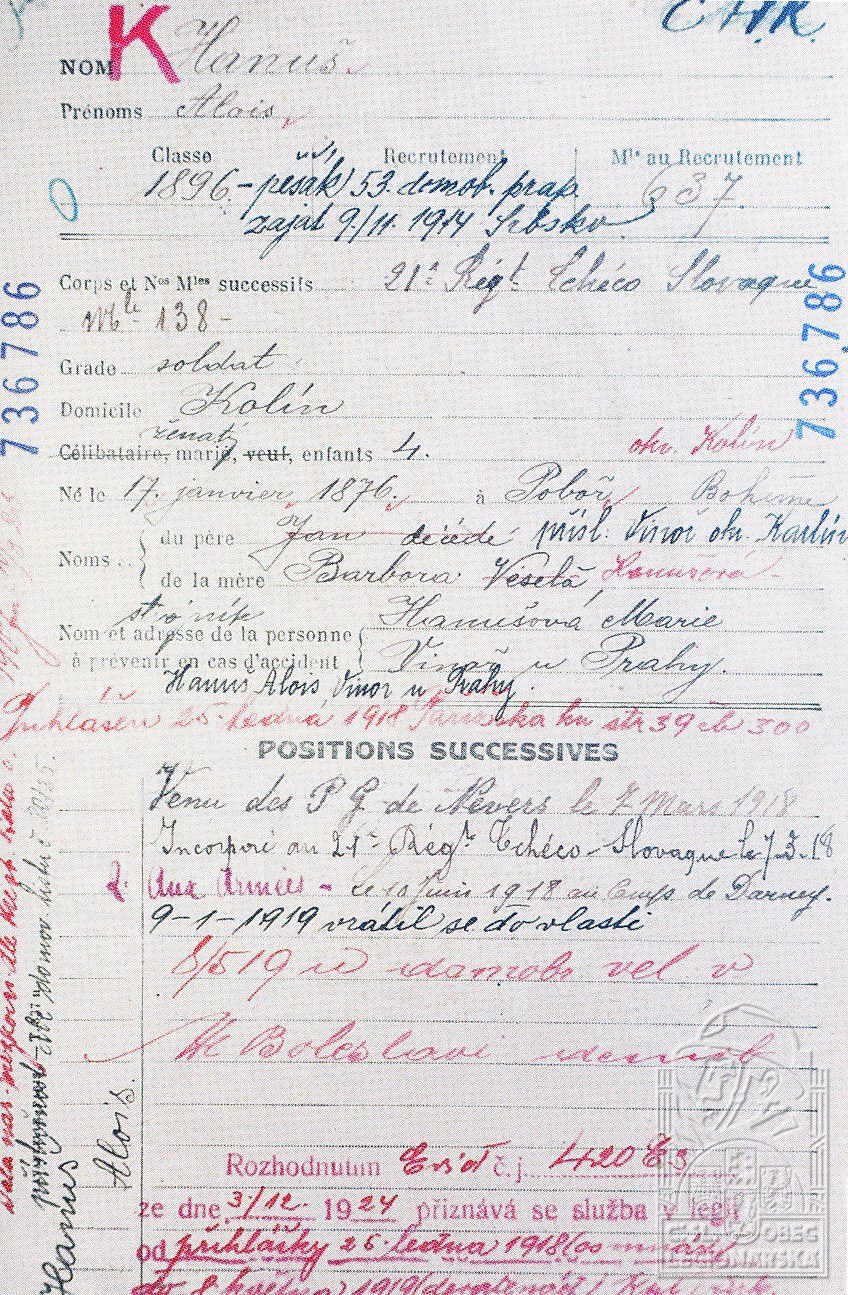 K
NOM Hanuš
Prénoms Alois
Classe Recrutement Mle au Recrutement
1896 - pěšák 53. domob. prap. 637.
zajat 9./11. 1914 Srbsko
Corps et Nos Mles successifs 21e Régt. Tchéco Slovaque
Mle 138 -
736786
736786
Grade soldat
Domicile Kolín
ženatý
okr. Kolín
Célibataire, marié, veuf, enfants 4.
Né le 17. janvier 1876. à Poboř Bohême
Noms du père Jan décédé přísl. Vinoř okr. Karlín
de la mère Barbora Veselá Hanušová
Hanušová Marie
Nom et adresse de la personne
à prévenir en cas d'accident Vinoř u Prahy.
Hanuš Alois Vinoř u Prahy.
Přihlášen 25. ledna 1918 str 39 čb 300
POSITIONS SUCCESSIVES
Venu des P G de Nevers le 7 Mars 1918
Incorporé au 21e Régt. Tchéco-Slovaque le 7-3-18
Aux Armées - Le 10 Juin 1918 au Camp de Darney.
9-1-1919 vrátil se do vlasti
8/5 19 u domob. vel v
Ml Boleslavi demob
Hanuš Alois.
Rozhodnutím č.j. 420
ze dne 3/12. 1924 přiznává se služba v legii
od přihlášky 25. ledna 1918
do 8 května 1919
ČSL. OBEC
LEGIONÁŘSKÁ